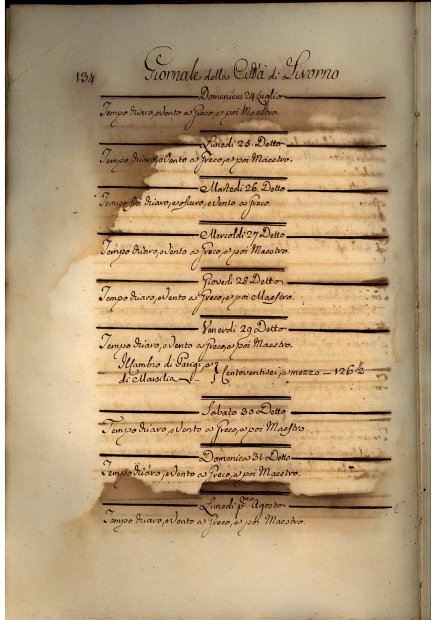 134
Giornale della Città di Livorno
Domenica 24 Luglio
Tempo chiaro, e Vento a Greco, e poi Maestro.
Lunedì 25 Detto
Tempo chiaro, e Vento a Greco, e poi Maestro.
Martedì 26 Detto
Tempo fra chiaro, e oscuro, e Vento a Greco
Mercoldì 27 Detto
Tempo chiaro, e Vento a Greco, e poi Maestro.
Giovedì 28 Detto
Tempo chiaro, e Vento a Greco, e poi Maestro.
Venerdì 29 Detto
Tempo chiaro, e Vento a Greco, e poi Maestro.
Il Cambio di Parigi, e
di Marsilia
Centoventisei, e mezzo — 126 1/2
Sabato 30 Detto
Tempo chiaro, e Vento a Greco, e poi Maestro.
Domenica 31 Detto
Tempo chiaro, e Vento a Greco, e poi Maestro.
Lunedì pmo Agosto
Tempo chiaro, e Vento a Greco, e poi Maestro.